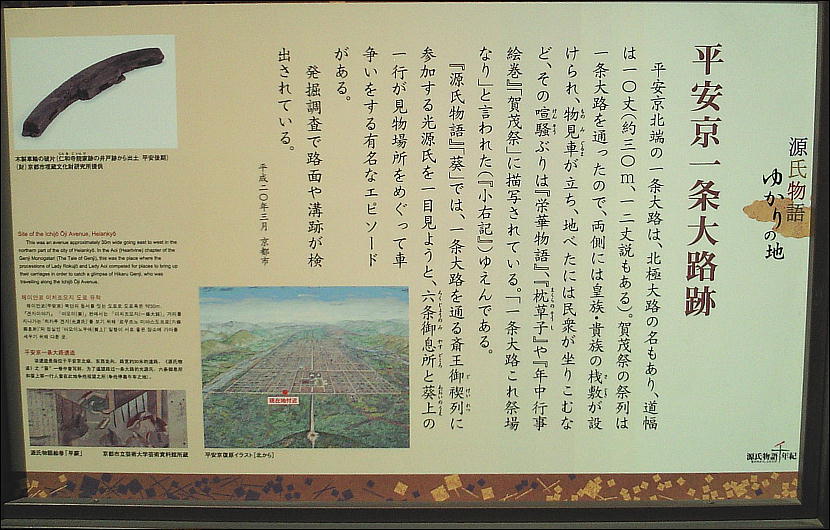 源氏物語
ゆかりの地
平安京一条大路跡
平安京北端の一条大路は、北極大路の名もあり、道幅
は一〇丈(約三〇m、一二丈説もある)。賀茂祭の祭列は
一条大路を通ったので、両側には皇族・貴族の桟敷が設
けられ、物見車が立ち、地べたには民衆が坐りこむな
ど、その喧騒ぶりは『栄華物語』、『枕草子』や『年中行事
絵巻』『賀茂祭』に描写されている。「一条大路これ祭場
なり」と言われた(『小右記』)ゆえんである。
『源氏物語』「葵」では、一条大路を通る斎王御禊列に
参加する光源氏を一目見ようと、六条御息所と葵上の
一行が見物場所をめぐって車
争いをする有名なエピソード
がある。
発掘調査で路面や溝跡が検
出されている。
平成二〇年三月 京都市
木製車輪の破片[仁和寺院家跡の井戸跡から出土 平安後期]
(財)京都市埋蔵文化財研究所提供
Site of the Ichijō Ōji Avenue, Heiankyō
This was an avenue approximately 30m wide going east to west in the
northern part of the city of Heiankyō. In the Aoi (Heartvine) chapter of the
Genji Monogatari (The Tale of Genji), this was the place where the
processions of Lady Rokujō and Lady Aoi competed for places to bring up
their carriages in order to catch a glimpse of Hikaru Genji, who was
travelling along the Ichijō Avenue.
헤이안쿄 이치조오지 도로 유적
平安京一条大路遗迹
源氏物語絵巻「平蔵」
京都市立芸術大学芸術資料館所蔵
現在地付近
平安京復原イラスト[北から]
源氏物語千年紀